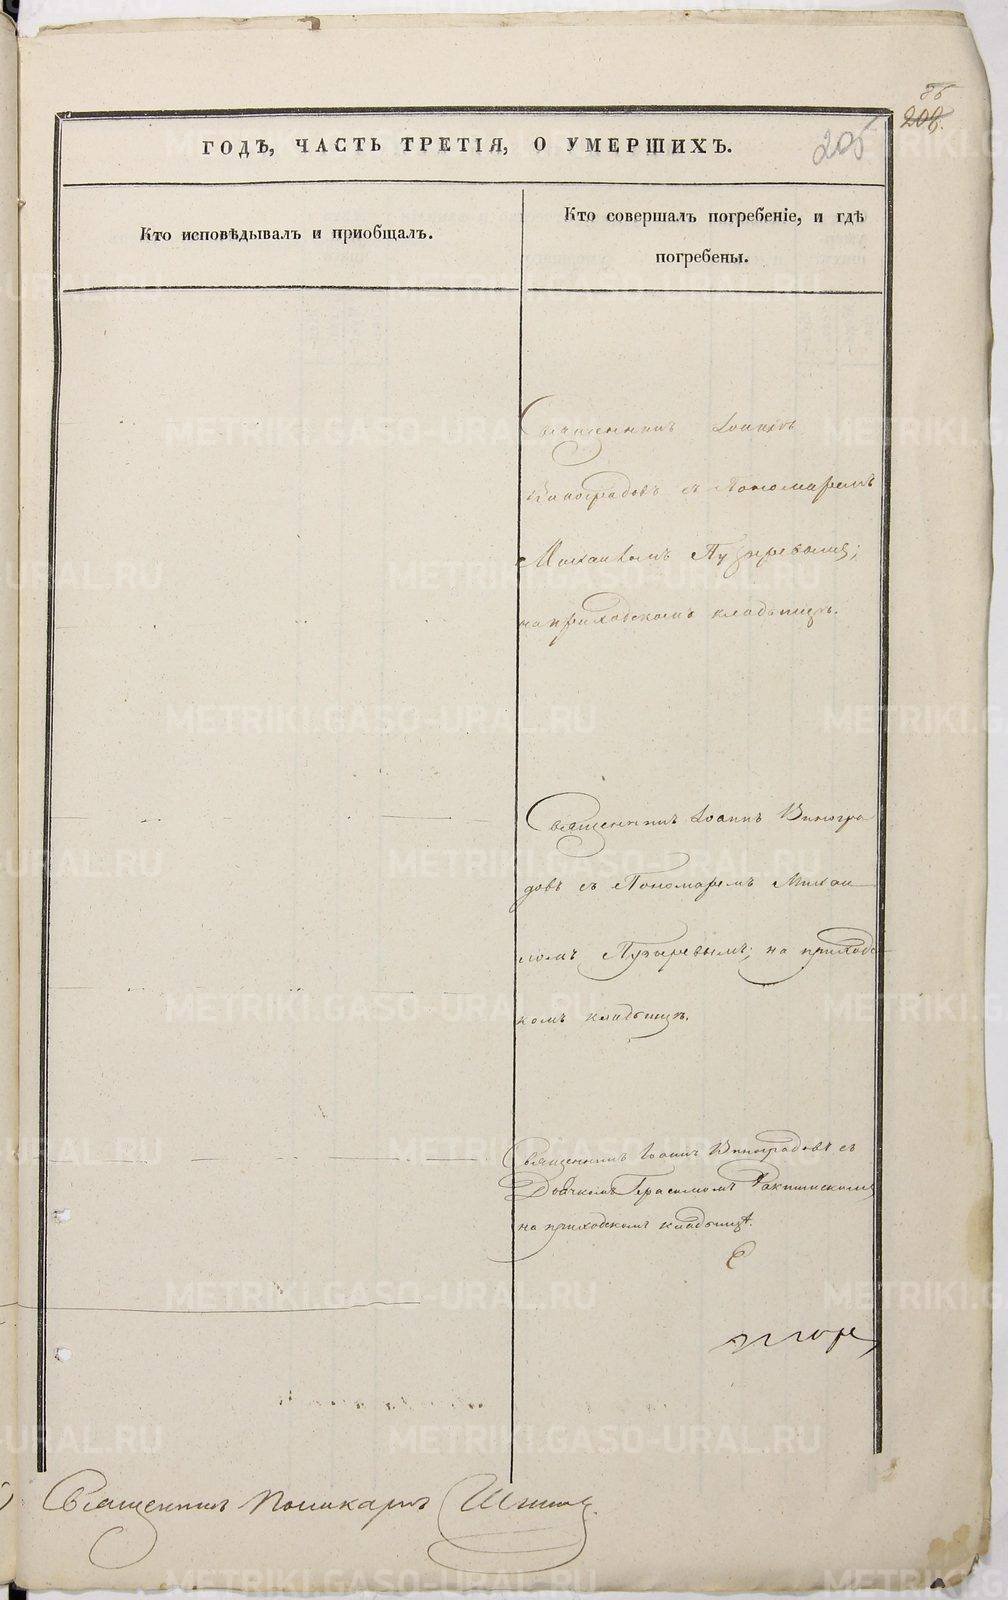 205
208.
ГОДѢ, ЧАСТЬ ТРЕТІЯ, О УМЕРШИХЪ.
Кто исповѣдывалъ и пріобщалъ.
Кто совершалъ погребеніе, и гдѣ
погребены.
Священникъ Іоаннъ
Виноградовъ съ Пономаремъ
Михаиломъ Пузыревымъ;
на приходскомъ кладбищѣ.
Священникъ Іоаннъ Виногра
довъ съ Пономаремъ Михаи
ломъ Пузыревымъ; на приходс
комъ кладбищѣ.
Священникъ Іоаннъ Виноградовъ съ
Дьячкомъ Герасимомъ
на приходскомъ кладбищѣ.
Священникъ Поликарпъ
METRIKI.GASO-URAL.RU